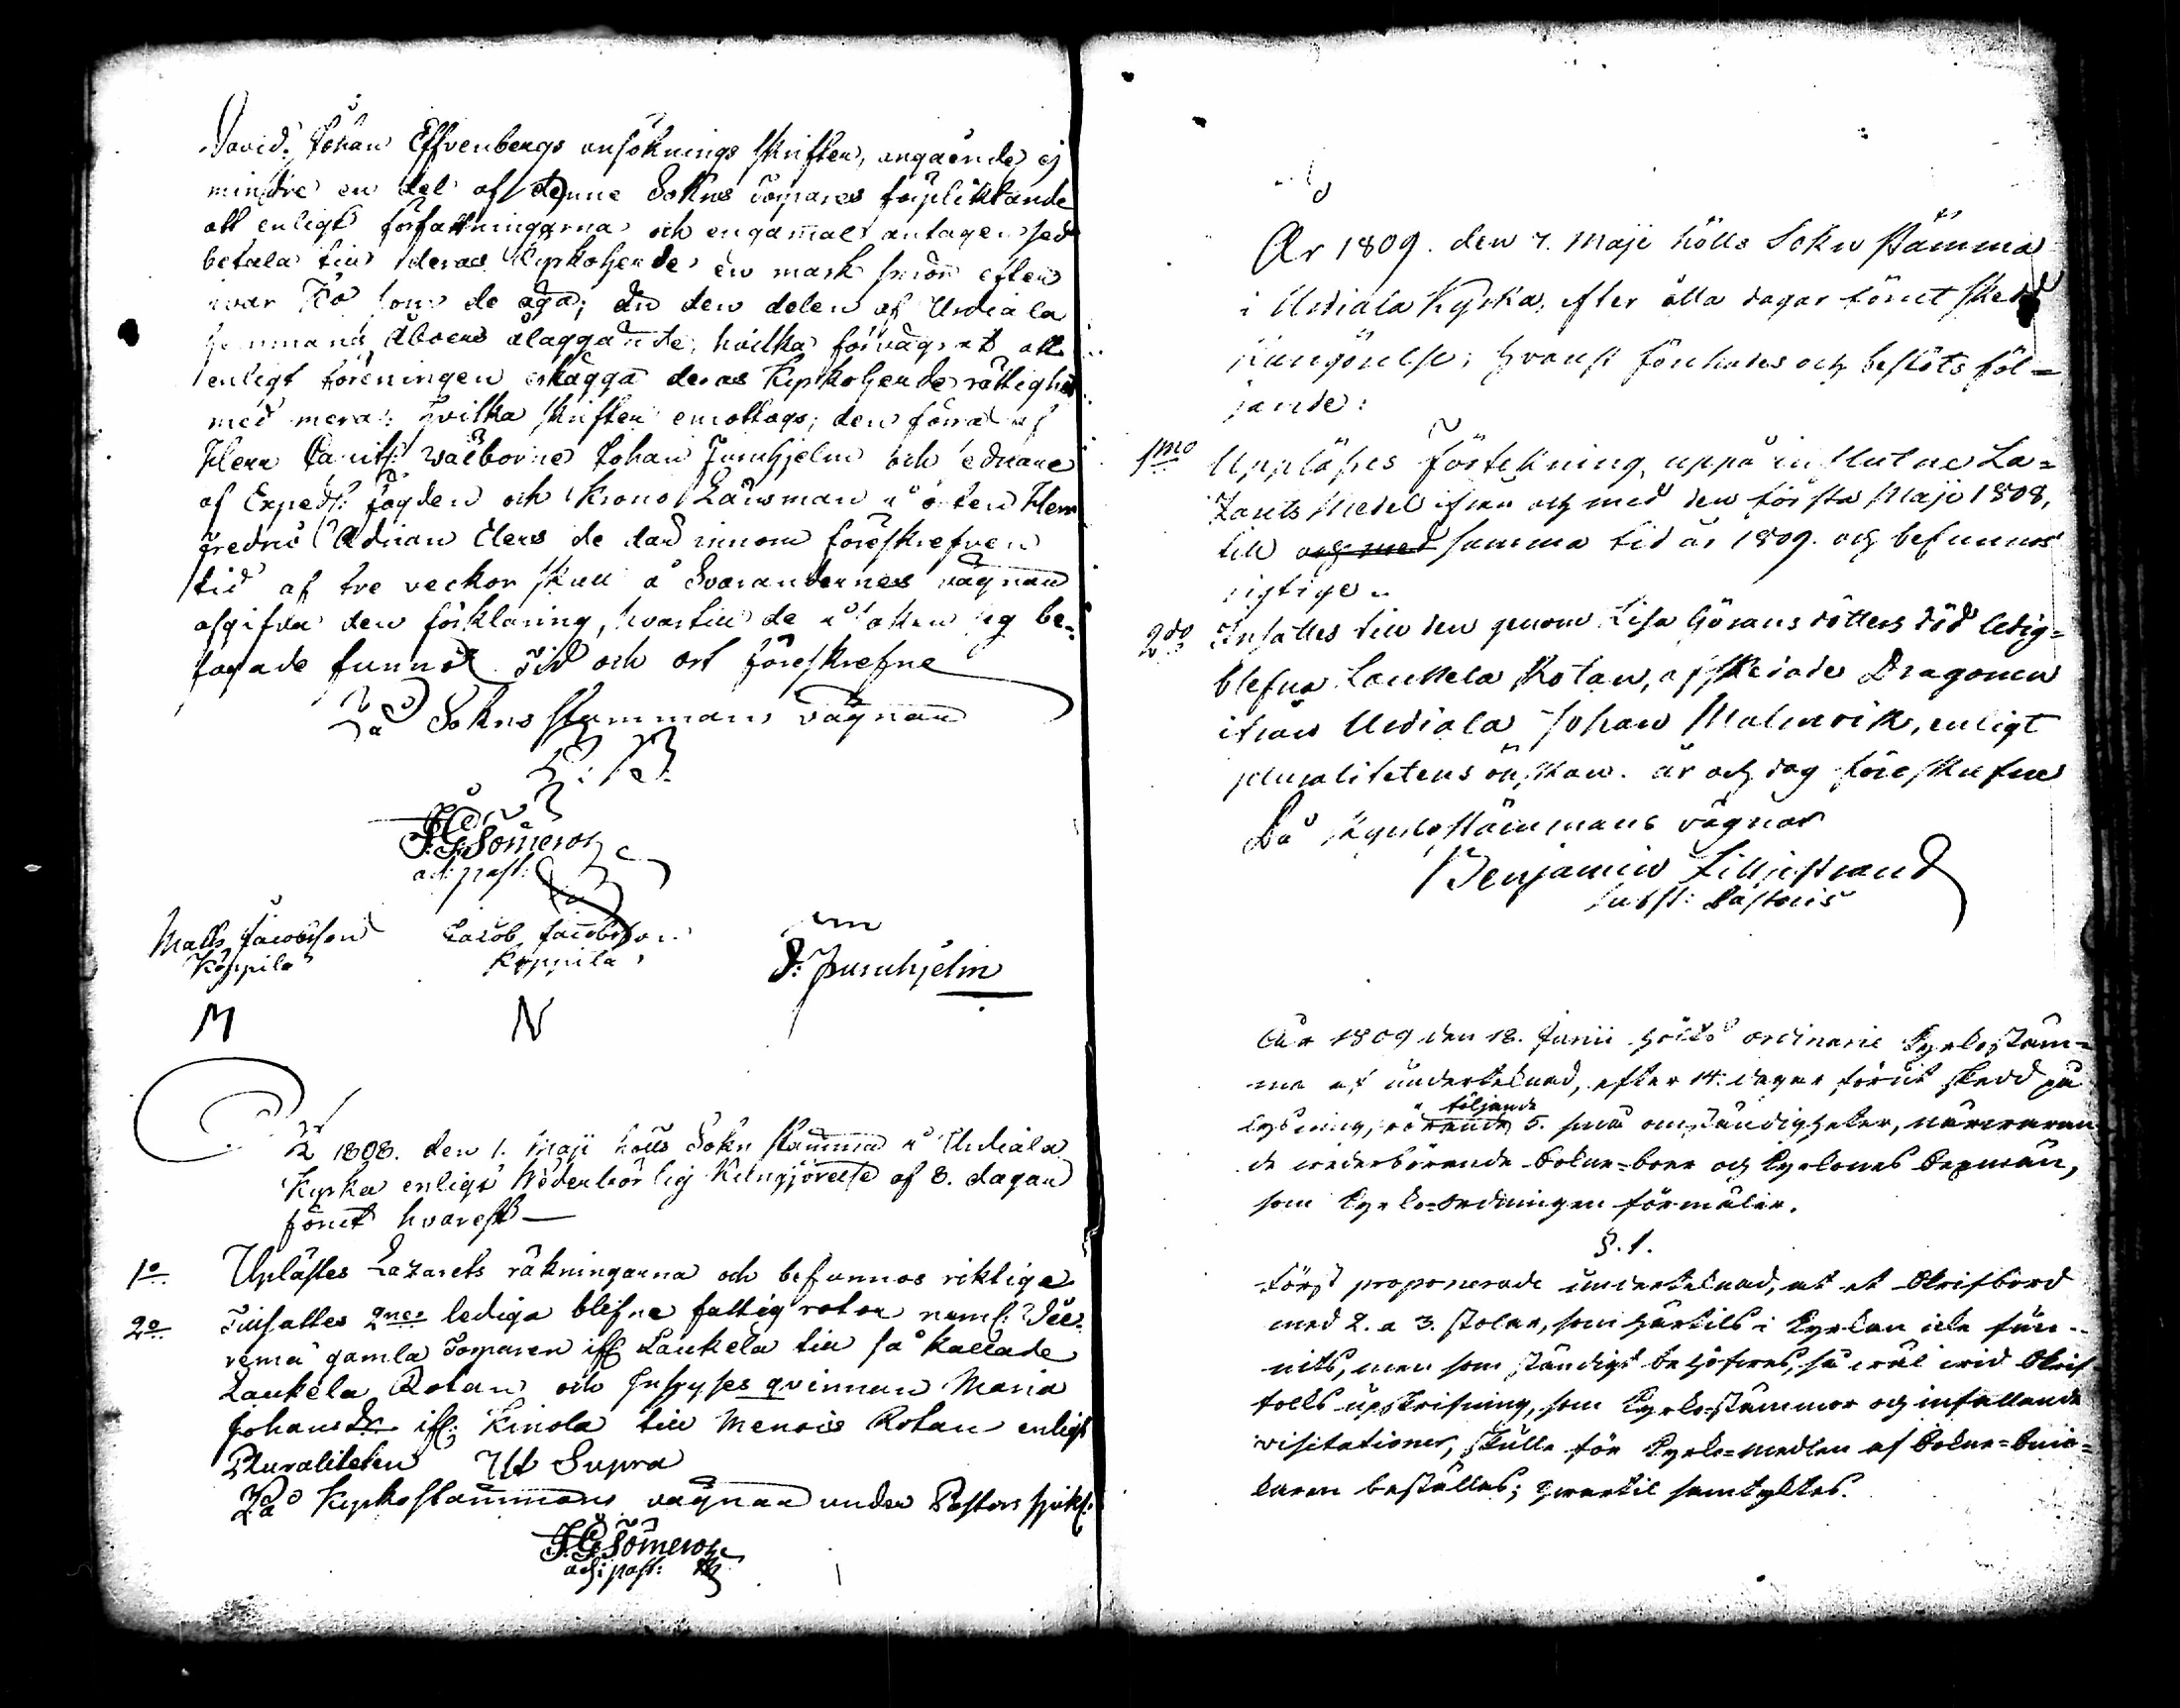 David Johan Effrenbergs ansöknings skrifter, angående ej
mindre en del af denne Sokns Torpares förpliktande
att enligt författningarna och en gammal antagen sed
betala till deras Kyrkoherde en mark smör efter
hvar Ko som de äga; än den delen af Urdiala
hemmans Åboers åläggande, hvilka förvägrat att
enligt föreningen erlägga deras Kyrkoherde rättighet
med mera: hvilka skrifter emottogs; den förra af
Herr Capit: Välborne Johan Furuhjelm och sednare
af Exped: fogden och Krono Länsman å orten Herr
Fredric Adrian Clers de där innom föreskrefven
tid af tre veckor skall å Svarandernes vägnar
afgifva den förklaring, hvartill de å saken sig be-
fogade funnit Tid och ort föreskrefne
På Sokne stämmans vägnar
J. G. Someron
adj: past:
Matts Jacobsson Jacob Jacobsson
Köppilä Köppilä J: Furuhjelm
M N
År 1808. den 1. Maji holls Sokn stämma i Urdiala
Kyrka enligt Vederbörlig Kungjörelse af 8. dagar
förut hvarest
1o Uplästes Lazarets räkningarna och befunnos riktige
2o Insattes 2ne lediga blifne fattig rotar neml:
gamla Torparen ifr Laukela till så kallade
Laukela Rotan och Inhyses qvinnan Maria
Johansdr ifr: Kinola till Menois Rotan enligt
Pluraliteten Ut Supra
På Kyrkostämmans vägnar under Pastors sjukl:
J. G. Someron
adj: past:
År 1809. den 7. Maji hölls Sokn Stämma
i Urdiala Kyrka, efter åtta dagar förut skedd
kungörelse; hvarest förehades och beslöts föl=
jande:
1mo Upplästes Förtekning uppå influtne La=
zaretts Medel ifrån och med den första Maji 1808,
till och med samma tid år 1809. och befunnos
rigtige.
2do Insattes till den genom Lisa Görans dotters död ledig=
blefne Laukela Rotan, afskedade Dragonen
ifrån Urdiala Johan Malmrik, enligt
pluralitetens önskan. år och dag föreskrefne
På Kyrkostämmans vägnar
Benjamin Lilljestrand
subst: Pastoris
År 1809 den 18. Junii hölts ordinarie Kyrkostäm=
ma af undertecknad, efter 14. dagar förut skedd på
lysning, rörande följande 5. små omständigheter, närvaran
de vederbörande Sokne-boer och Kyrkones Sexmän,
som Kyrko=Ordningen förmäler.
§. 1.
Först proponerade undertecknad, at et Skrifbord
med 2. a 3. stolar, som härtils i Kyrkan icke fun-
nits, men som ständigt behöfves, så väl vid
upskrifning, som Kyrko-stämmor och infallande
visitationer, skulle för Kyrko=medlen af
beställas; hvartil samtyktes.